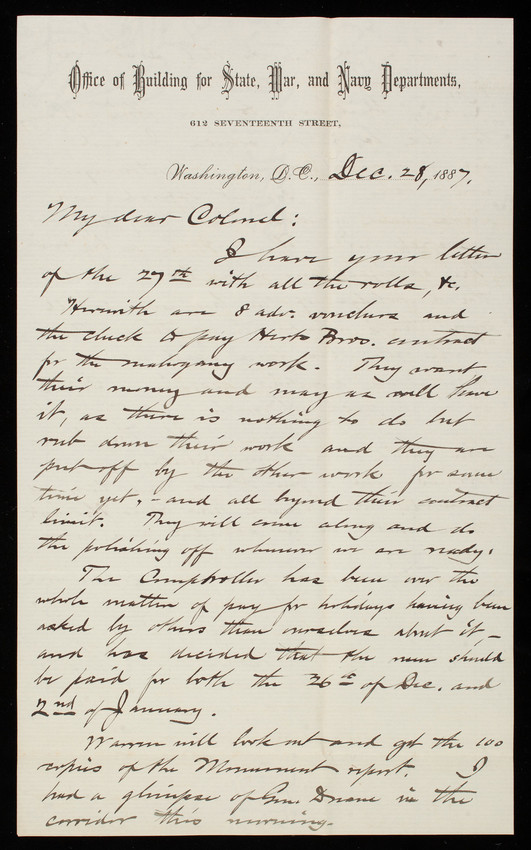 Office of Building for State, War, and Navy Departments,
612 SEVENTEENTH STREET,
Washington, D.C., Dec. 28, 1887.
My dear Colonel:
I have your letter
of the 27th with all the rolls, &c.
Herewith are 8 adv. vouchers and
the check to pay Herts Bros. contract
for the mahogany work. They want
their money and may as well have
it, as there is nothing to do but
rub down their work and they are
put off by the other work for some
time yet, - and all beyond their contract
limit. They will come along and do
the polishing off whenever we are ready.
The Comptroller has been over the
whole matter of pay for holidays having been
asked by others than ourselves about it -
and has decided that the men should
be paid for both the 26th of Dec. and
2nd of January.
Warren will look out and get the 100
copies of the Monument report. I
had a glimpse of Gen. Duane in the
corridor this morning.